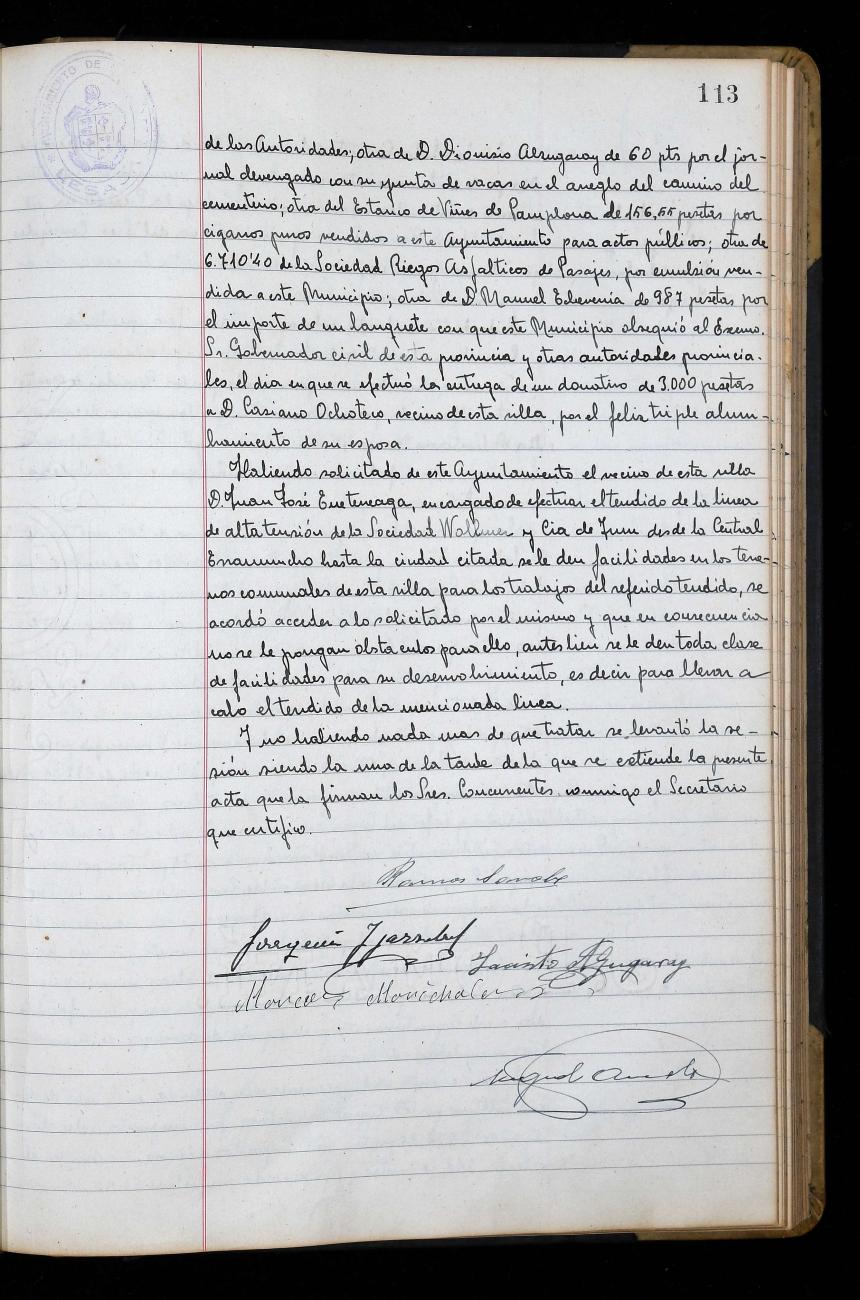 113
AYUNTAMIENTO DE
LESACA
de las Autoridades; otra de D. Dionisio Alzugaray de 60 pts por el jor-
nal devengado con su yunta de vacas en el areglo del camino del
cementerio; otra del Estanco de Viñes de Pamplona de 156,55 pesetas por
cigarros puros vendidos a este Ayuntamiento para actos públicos; otra de
6.710'40 de la Sociedad Riegos Asfalticos de Pasajes, por emulsión ven-
dida a este Municipio; otra de D. Manuel Echeverria de 987 pesetas por
el importe de un banquete con que este Municipio obsequió al Excmo.
Sr. Gobernador civil de esta provincia y otras autoridades provincia-
les, el dia en que se efectuó la entrega de un donativo de 3.000 pesetas
a D. Casiano Ochoteco, vecino de esta villa, por el feliz triple alum-
bramiento de su esposa.
Habiendo solicitado de este Ayuntamiento el vecino de esta villa
D. Juan José encargado de efectuar el tendido de la linea
de alta tensión de la Sociedad y Cia de Irun desde la Central
hasta la ciudad citada se le den facilidades en los terre-
nos comunales de esta villa para los trabajos del referido tendido, se
acordó acceder a lo solicitado por el mismo y que en consecuencia
no se le pongan obstaculos para ello, antes bien se le den toda clase
de facilidades para su desenvolvimiento, es decir para llevar a
cabo el tendido de la mencionada linea.
Y no habiendo nada mas de que tratar se levantó la se-
sión siendo la una de la tarde de la que se estiende la presente
acta que la firman los Sres. Concurrentes conmigo el Secretario
que certifico.
Ramos
Joaquin
Jacinto Alzugaray
Marcos Marichalar
Miguel